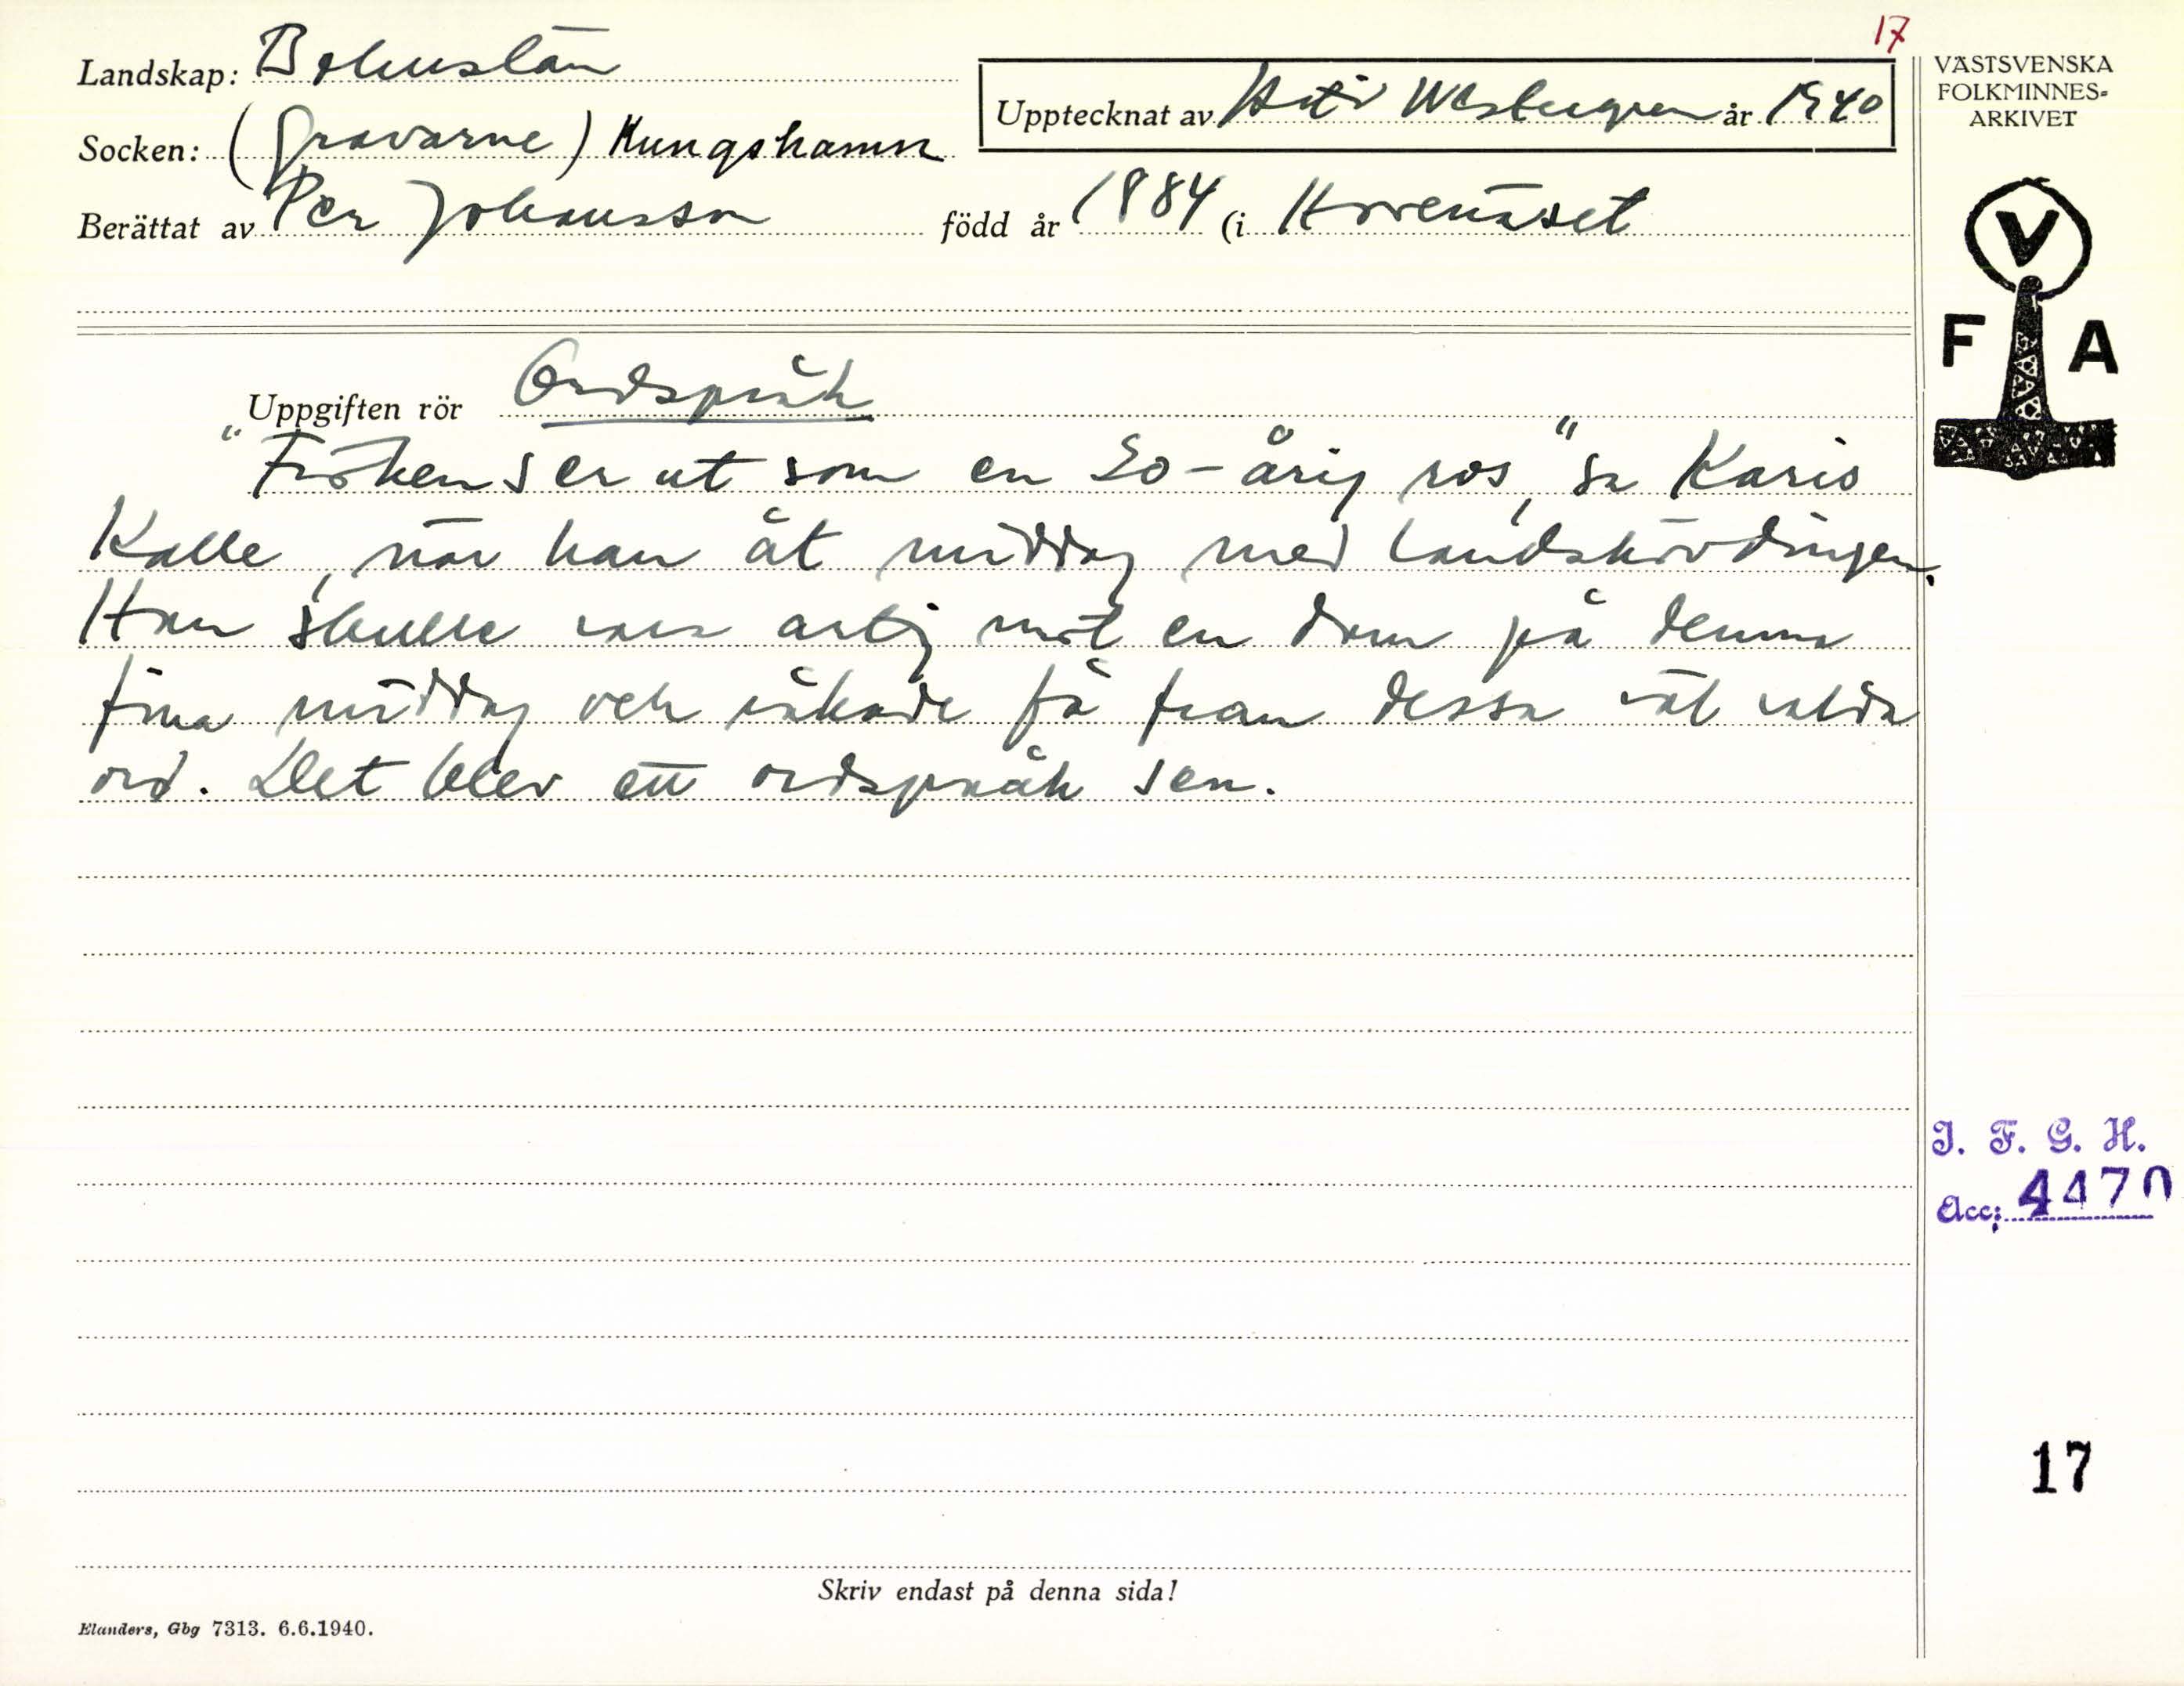 17
Landskap: Bohuslän
Upptecknat av Westergren år 1940
Socken: (Gravarne) Kungshamn
Berättat av Per Johansson född år 1884 (i Hovenäset
Uppgiften rör Ordspråk
"Fröken ser ut som en 20-årig ros," sa Karis
Kalle, när han åt middag med landshövdingen.
Han skulle vara artig mot en dam på denna
fina middag och råkade få fram dessa väl valda
ord. Det blev ett ordspråk sen.
Skriv endast på denna sida!
Elanders, Gbg 7313. 6.6.1940.
VÄSTSVENSKA
FOLKMINNES-
ARKIVET
V
F A
I. F. G. H.
Acc: 4470
17